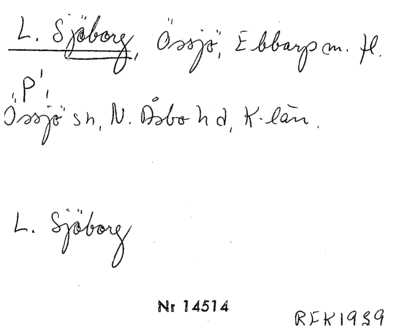 L. Sjöborg, Össjö, Ebbarp m. fl.
"P",
Össjö sn, N. Åsbo hd, K-län.
L. Sjöborg
Nr 14514
REK1939